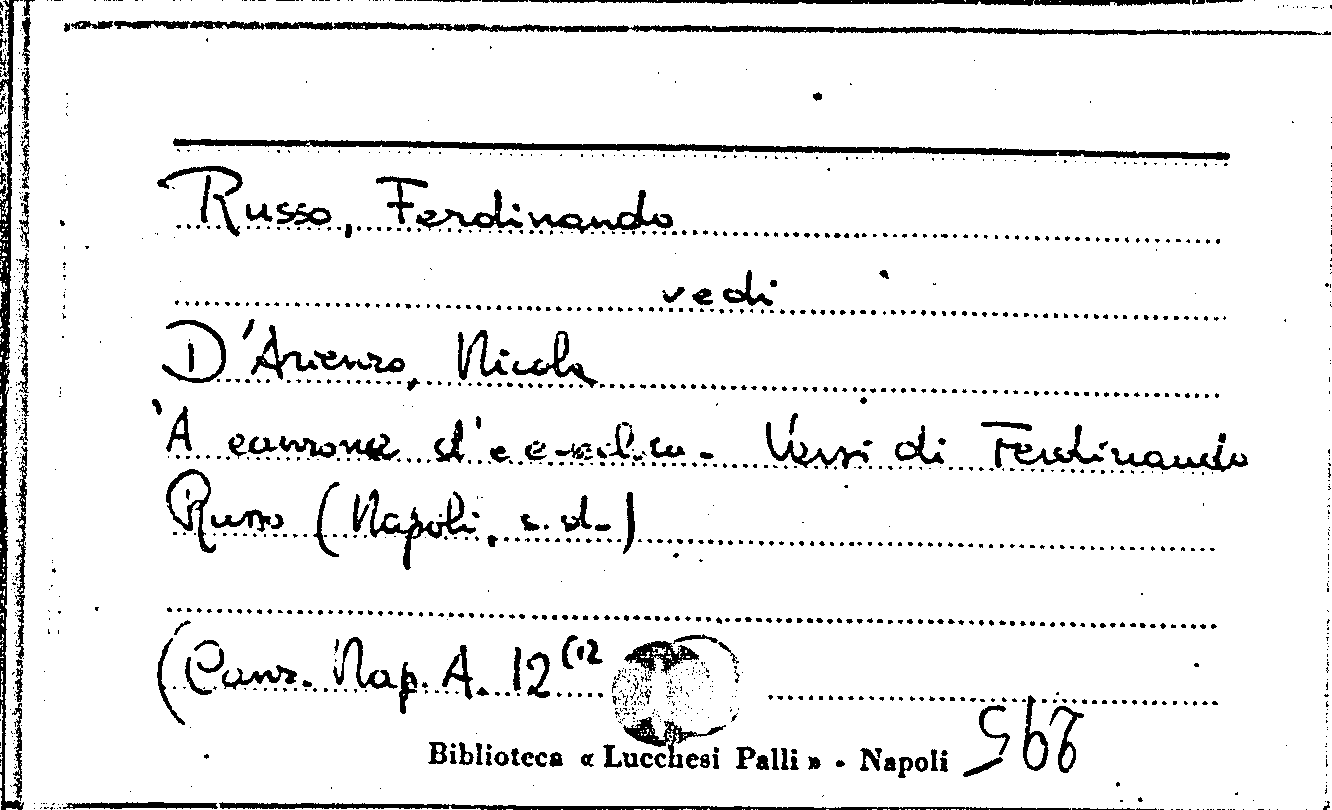 Russo, Ferdinando
vedi
D'Arienzo, Nicola
'A canzona d' 'e Versi di Ferdinando
Russo (Napoli, s.d.)
(Canz. Nap. A. 12 (12
Biblioteca « Lucchesi Palli » - Napoli